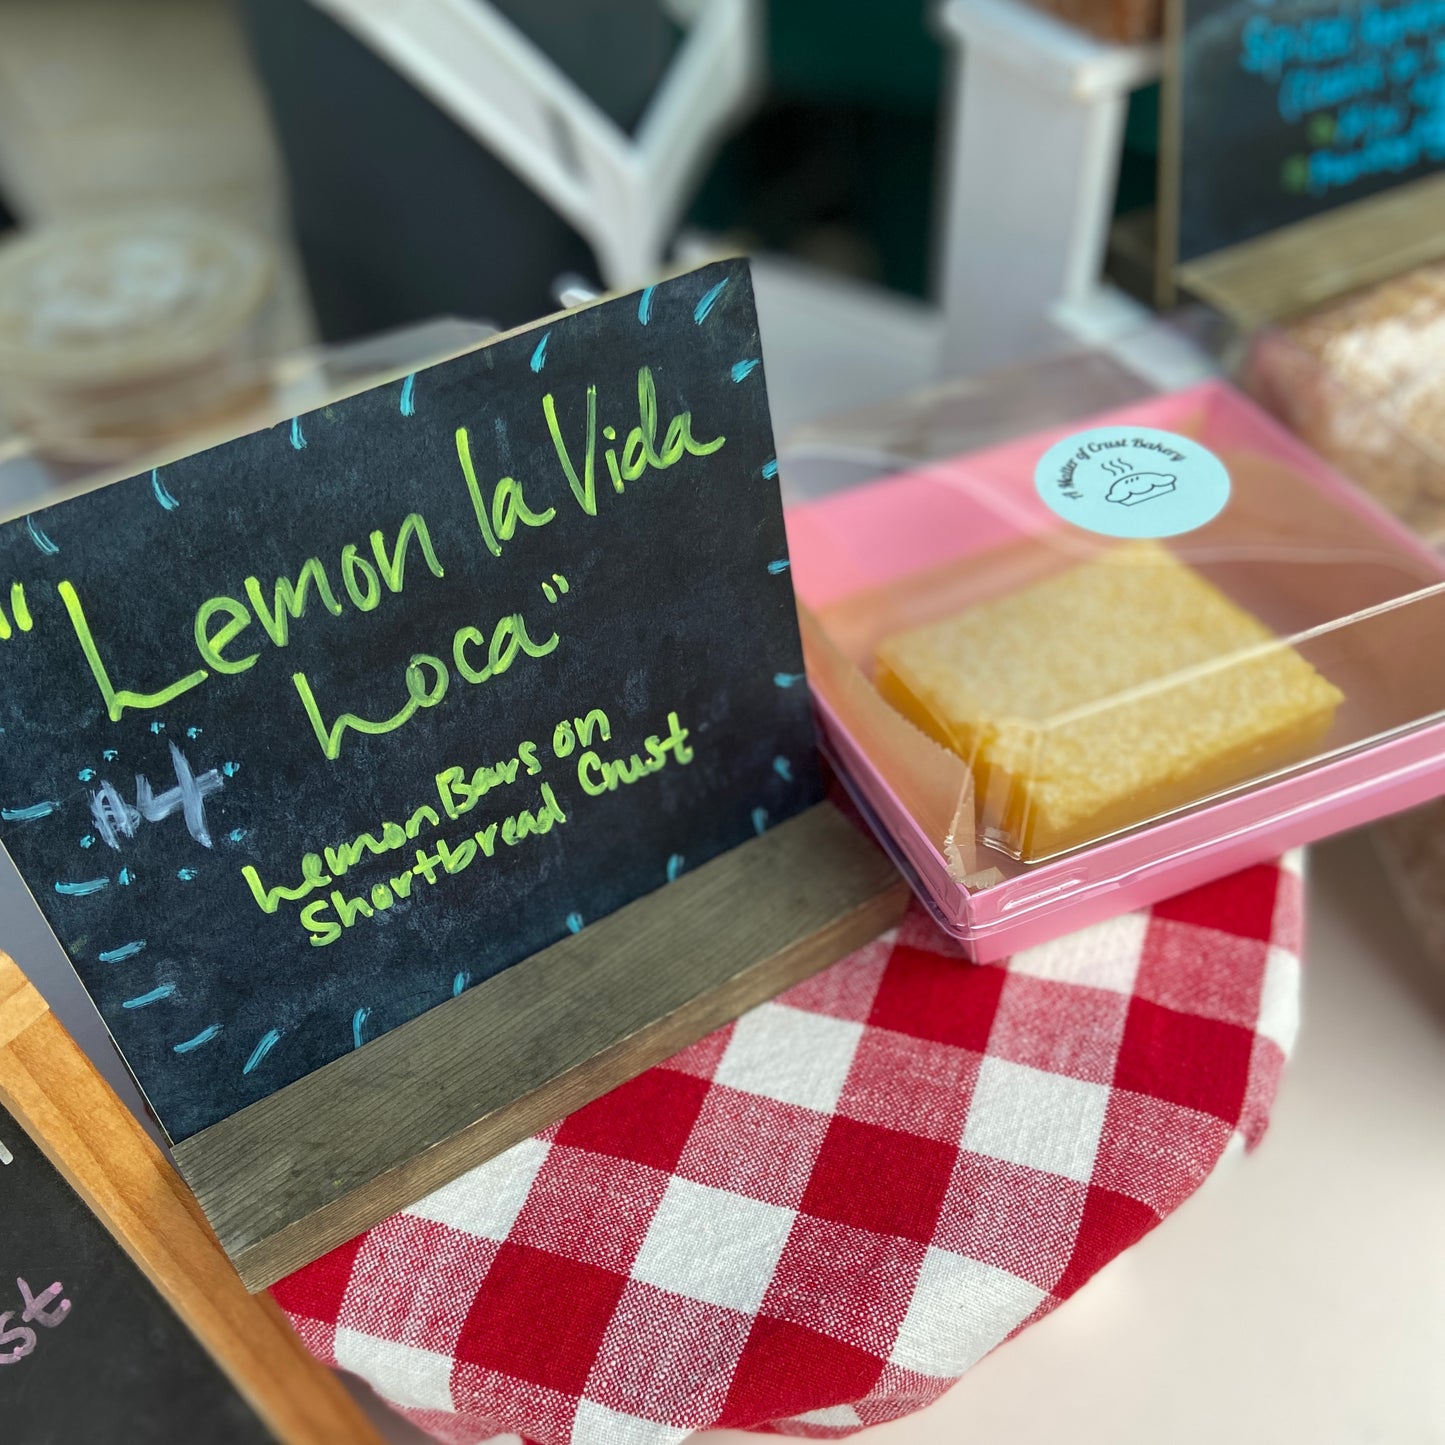 "Lemon la Vida
Loca"
$4
Lemon Bars on
Shortbread Crust
A Matter of Crust Bakery
st